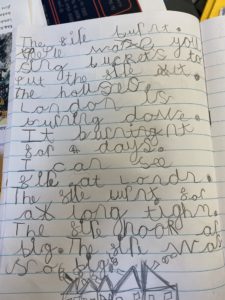 The file burnt.
theple maze you
sing buckets to
Put the file out.
The houses
London is
burning down.
It burning nt
for 4 days.
I can see
file at Londr.
The file urnt for
at long tighn.
The file hook at
big. The file was
so big